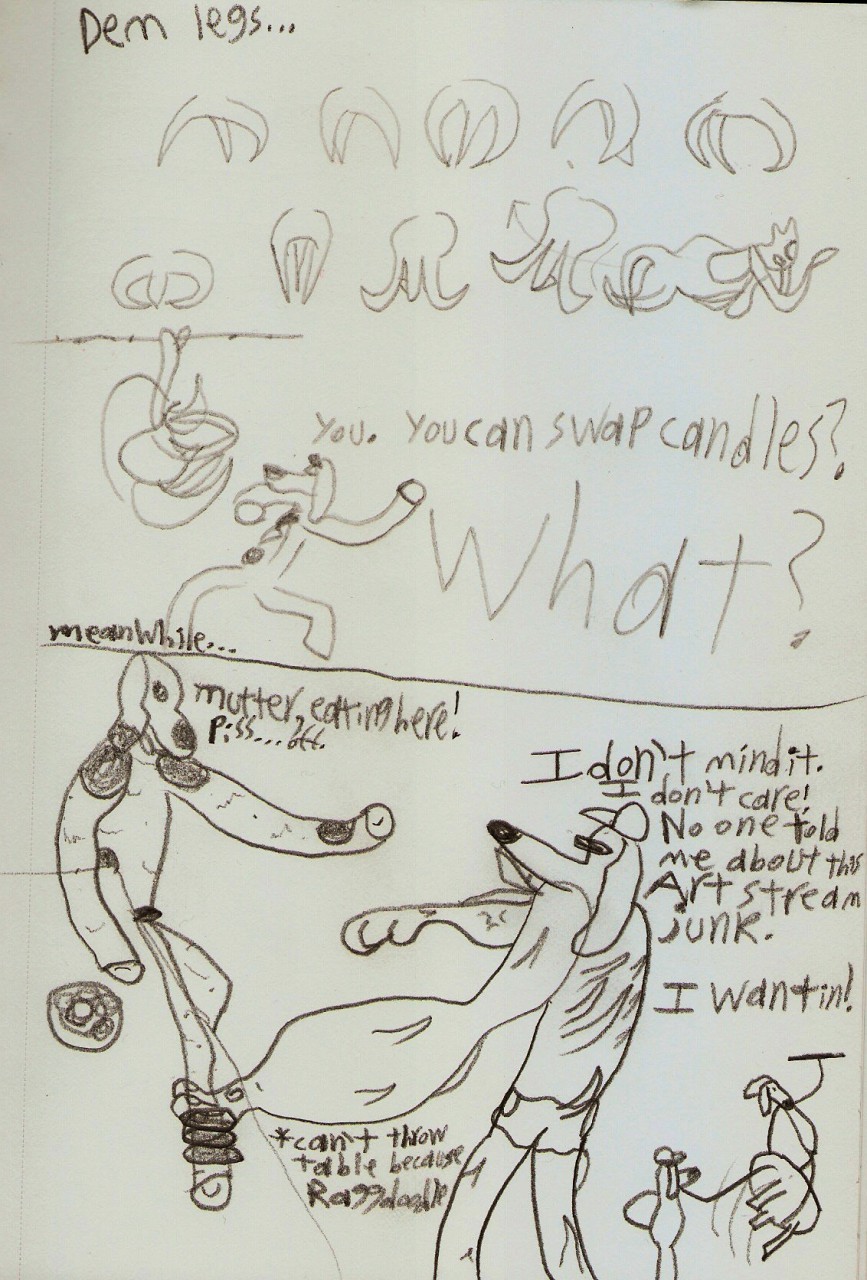 Dem legs...
You. You can swap candles?
What?
meanwhile...
mutter, eating here!
Piss... off.
I don't mind it.
I don't care!
No one told
me about this
Art stream
junk.
I want in!
*can't throw
table because
Raggdoodle